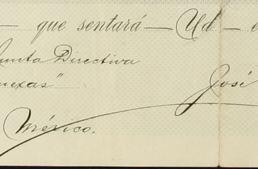 — que sentará — Ud — e
Junta Directiva
nexas" José
México.